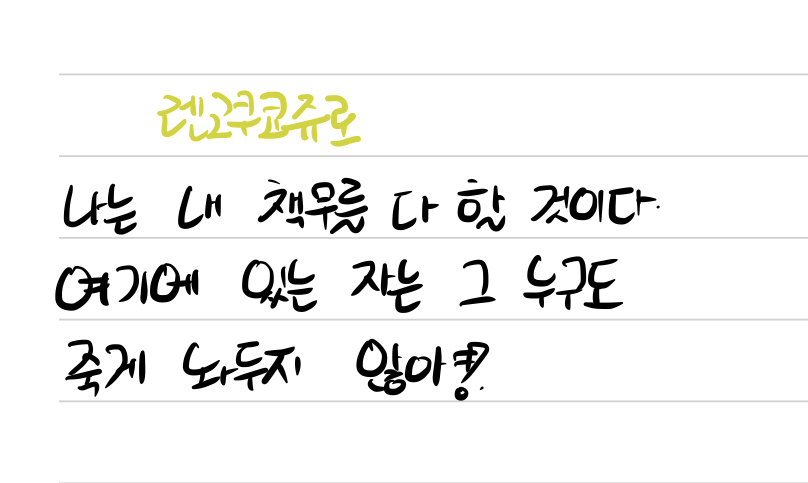 렌고쿠쿄쥬로
나는 내 책무를 다 할 것이다.
여기에 있는 자는 그 누구도
죽게 놔두지 않아!?